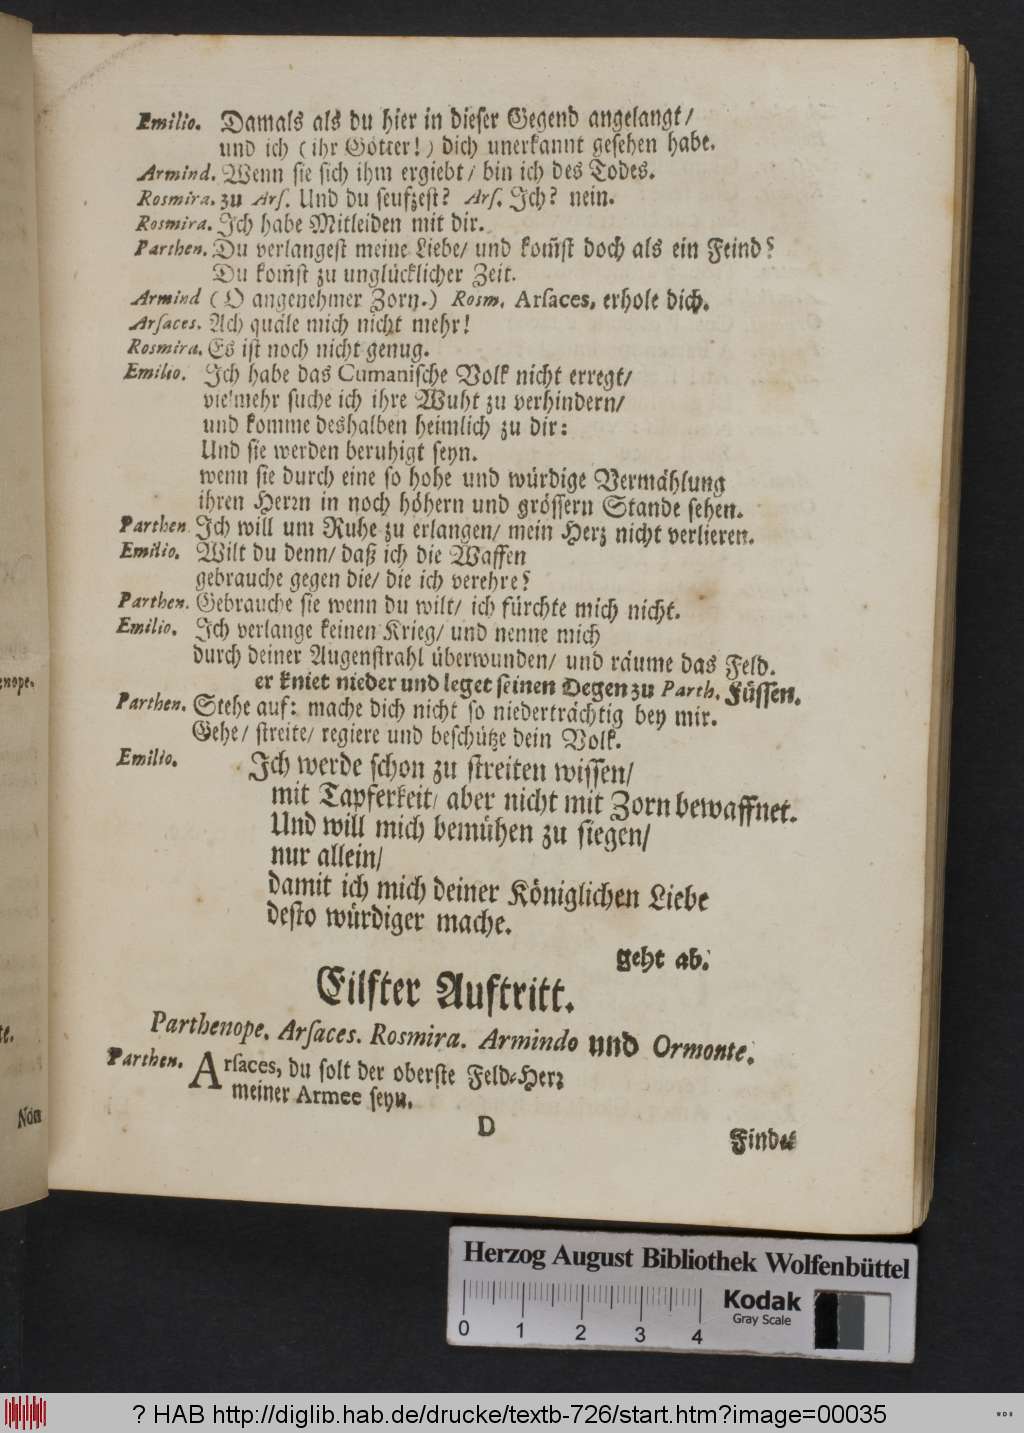 Emilio. Damals als du hier in dieser Gegend angelangt/
und ich (ihr Götter!) dich unerkannt gesehen habe.
Armind. Wenn sie sich ihm ergiebt/ bin ich des Todes.
Rosmira. zu Arſ. Und du seufzest? Arſ. Ich? nein.
Rosmira. Ich habe Mitleiden mit dir.
Parthen. Du verlangest meine Liebe/ und kom̃st doch als ein Feind?
Du kom̃st zu unglücklicher Zeit.
Armind (O angenehmer Zorn.) Rosm. Arſaces, erhole dich.
Arſaces. Ach quäle mich nicht mehr!
Rosmira. Es ist noch nicht genug.
Emilio. Ich habe das Cumanische Volk nicht erregt/
vielmehr suche ich ihre Wuht zu verhindern/
und komme deshalben heimlich zu dir:
Und sie werden beruhigt seyn.
wenn sie durch eine so hohe und würdige Vermählung
ihren Herrn in noch höhern und grössern Stande sehen.
Parthen. Ich will um Ruhe zu erlangen/ mein Herz nicht verlieren.
Emilio. Wilt du denn/ daß ich die Waffen
gebrauche gegen die/ die ich verehre?
Parthen. Gebrauche sie wenn du wilt/ ich fürchte mich nicht.
Emilio. Ich verlange keinen Krieg/ und nenne mich
durch deiner Augenstrahl überwunden/ und räume das Feld.
er kniet nieder und leget seinen Degen zu Parth. Füssen.
Parthen. Stehe auf: mache dich nicht so niederträchtig bey mir.
Gehe/ streite/ regiere und beschütze dein Volk.
Emilio. Ich werde schon zu streiten wissen/
mit Tapferkeit/ aber nicht mit Zorn bewaffnet.
Und will mich bemühen zu siegen/
nur allein/
damit ich mich deiner Königlichen Liebe
desto würdiger mache.
geht ab.
Eilfter Auftritt.
Parthenope. Arſaces. Rosmira. Armindo und Ormonte.
Parthen. Arſaces, du solt der oberste Feld-Herr
meiner Armee seyn.
D
Finde
Herzog August Bibliothek Wolfenbüttel
Kodak
Gray Scale
0 1 2 3 4
? HAB http://diglib.hab.de/drucke/textb-726/start.htm?image=00035